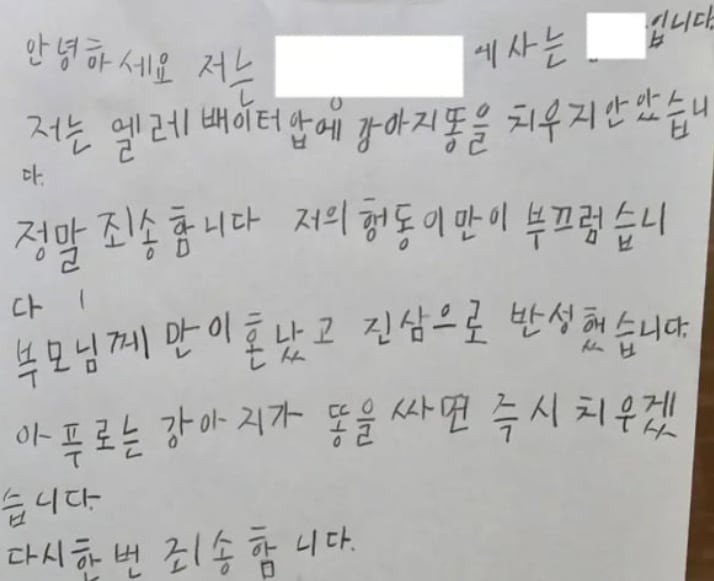 안녕하세요 저는 에사는 입니다
저는 엘레배이터압에 강아지똥을 치우지안았습니
다.
정말 죄송함니다 저의 헝동이만이 부끄럼습니
다
부모님께 만이혼났고 진삼으로 반성했습니다.
아푸로는 강아지가 똥을 싸면 즉시 치우겠
습니다.
다시한번 죄송함니다.